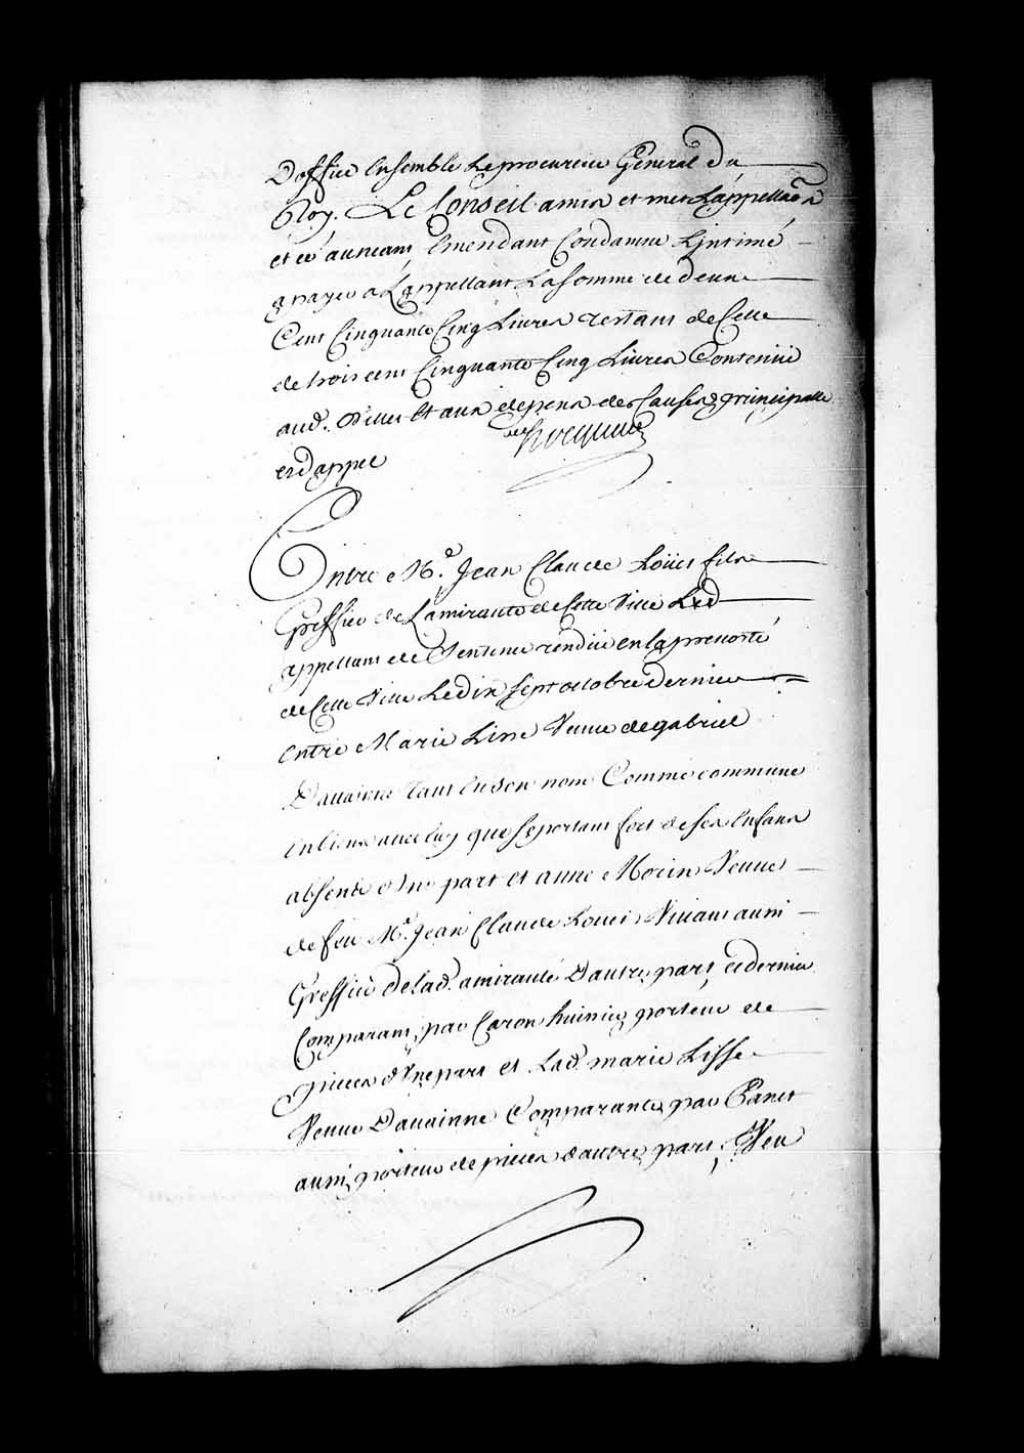 D'office Ensemble Le procureur General du
Roy. Le Conseil a mis et met L'appellaõn
et cé au neant, Emendant Condamne L'intimé
a payer a L'appellant La somme de deux
Cent Cinquante Cinq Livres restant de Celle
de trois cent Cinquante Cinq Livres Contenüe
aud. Billet Et aux depens des Causes principalle
et d'appel
hocquart
Entre M.e Jean Claude Loüet fils
Greffier de L'amirauté de Cette Ville Led
appellant de Sentence rendüe en la prevosté
de Cette Ville Le dix sept octobre dernier
Entre Marie Lisse Veuve de gabriel
Davainne Tant En son nom Comme commune
En biens avec luy que se portant fort de ses Enfans
absents d'Une part et anne Morin Veuve
de feu M.e Jean Claude Louet Vivant aussi
Greffier de lad. amirauté D'autre part, et dernier
Comparant, par Caron huissier porteur de
pieces d'Une part et Lad. marie Lisse
Veuve Davainne Comparante par Panet
aussi porteur de pieces d'autre part, Veu